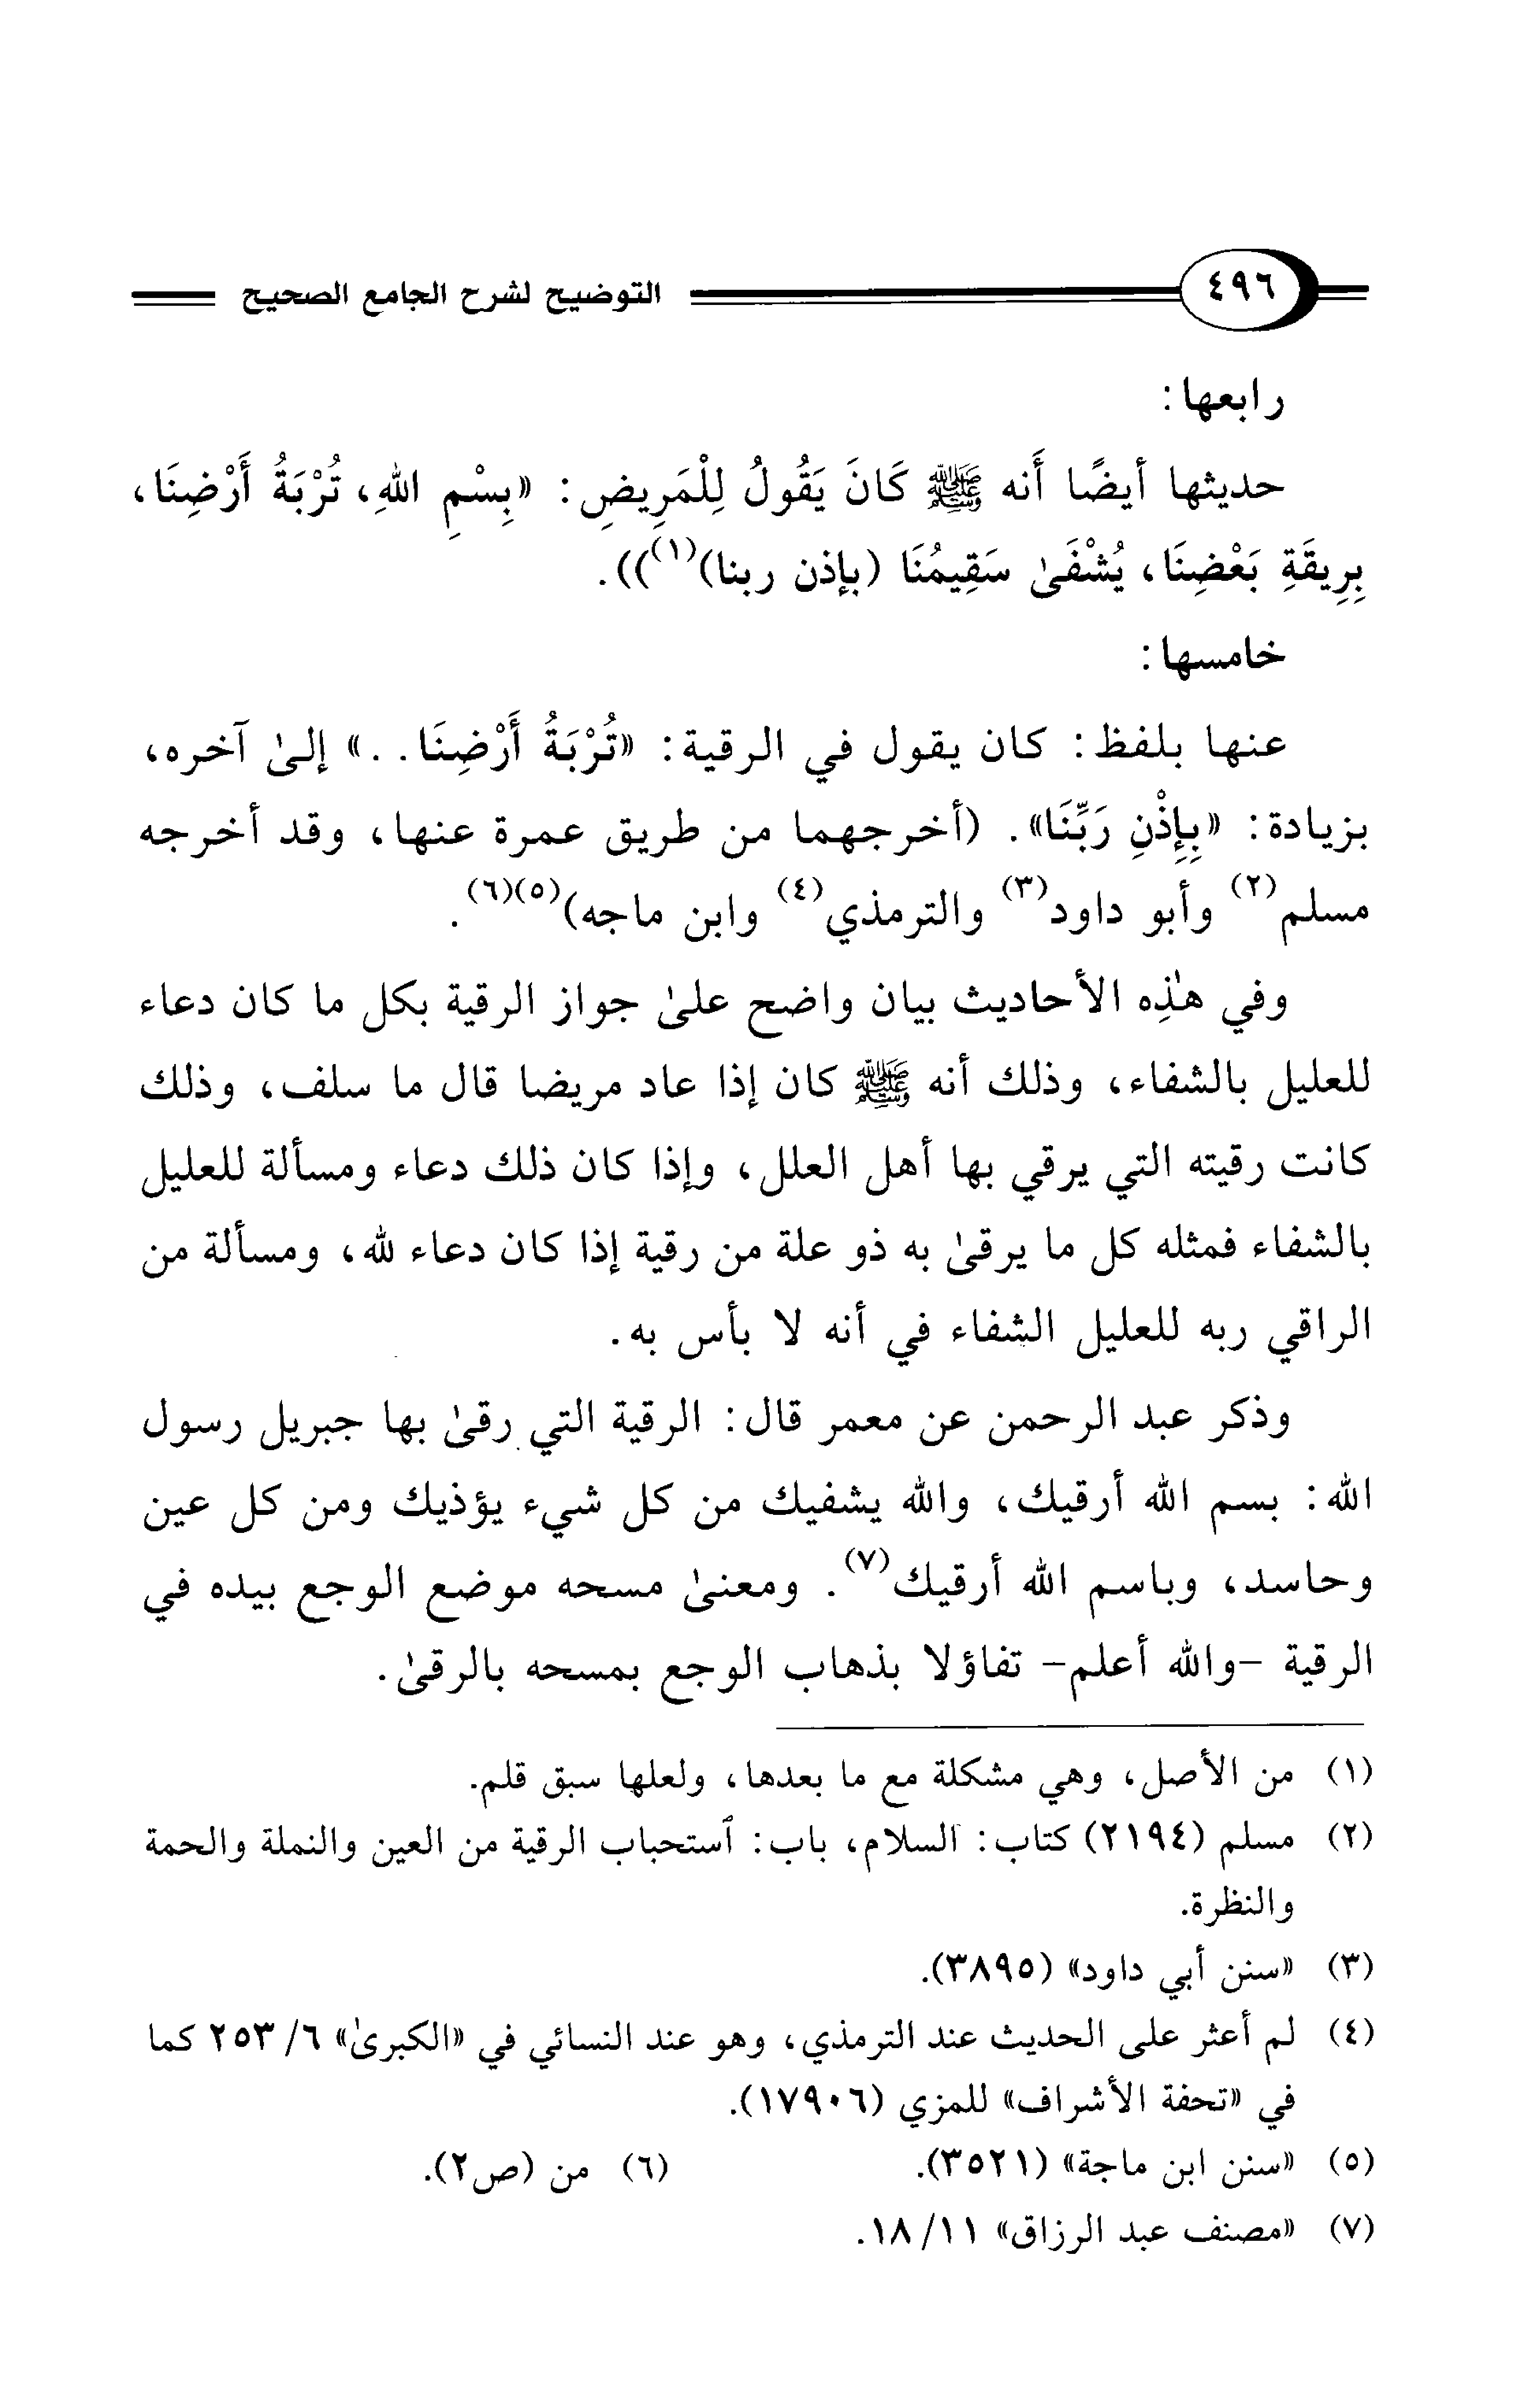 ٤٩٦ التوضيح لشرح الجامع الصحيح
رابعها:
حديثها أيضًا أَنه ﷺ كَانَ يَقُولُ لِلْمَرِيضِ: «بِسْمِ اللهِ، تُرْبَةُ أَرْضِنَا،
بِرِيقَةِ بَعْضِنَا، يُشْفَىٰ سَقِيمُنَا (بإذن ربنا)(١))).
خامسها:
عنها بلفظ: كان يقول في الرقية: «تُرْبَةُ أَرْضِنَا..» إلىٰ آخره،
بزيادة: «بِإِذْنِ رَبِّنَا». (أخرجهما من طريق عمرة عنها، وقد أخرجه
مسلم(٢) وأبو داود(٣) والترمذي(٤) وابن ماجه)(٥)(٦).
وفي هٰذِه الأحاديث بيان واضح علىٰ جواز الرقية بكل ما كان دعاء
للعليل بالشفاء، وذلك أنه ﷺ كان إذا عاد مريضا قال ما سلف، وذلك
كانت رقيته التي يرقي بها أهل العلل، وإذا كان ذلك دعاء ومسألة للعليل
بالشفاء فمثله كل ما يرقىٰ به ذو علة من رقية إذا كان دعاء لله، ومسألة من
الراقي ربه للعليل الشفاء في أنه لا بأس به.
وذكر عبد الرحمن عن معمر قال: الرقية التي رقىٰ بها جبريل رسول
الله: بسم الله أرقيك، والله يشفيك من كل شيء يؤذيك ومن كل عين
وحاسد، وباسم الله أرقيك(٧). ومعنىٰ مسحه موضع الوجع بيده في
الرقية -والله أعلم- تفاؤلا بذهاب الوجع بمسحه بالرقىٰ.
(١) من الأصل، وهي مشكلة مع ما بعدها، ولعلها سبق قلم.
(٢) مسلم (٢١٩٤) كتاب: السلام، باب: ٱستحباب الرقية من العين والنملة والحمة
والنظرة.
(٣) «سنن أبي داود» (٣٨٩٥).
(٤) لم أعثر على الحديث عند الترمذي، وهو عند النسائي في «الكبرىٰ» ٦/ ٢٥٣ كما
في «تحفة الأشراف» للمزي (١٧٩٠٦).
(٥) «سنن ابن ماجة» (٣٥٢١). (٦) من (ص٢).
(٧) «مصنف عبد الرزاق» ١١/ ١٨.